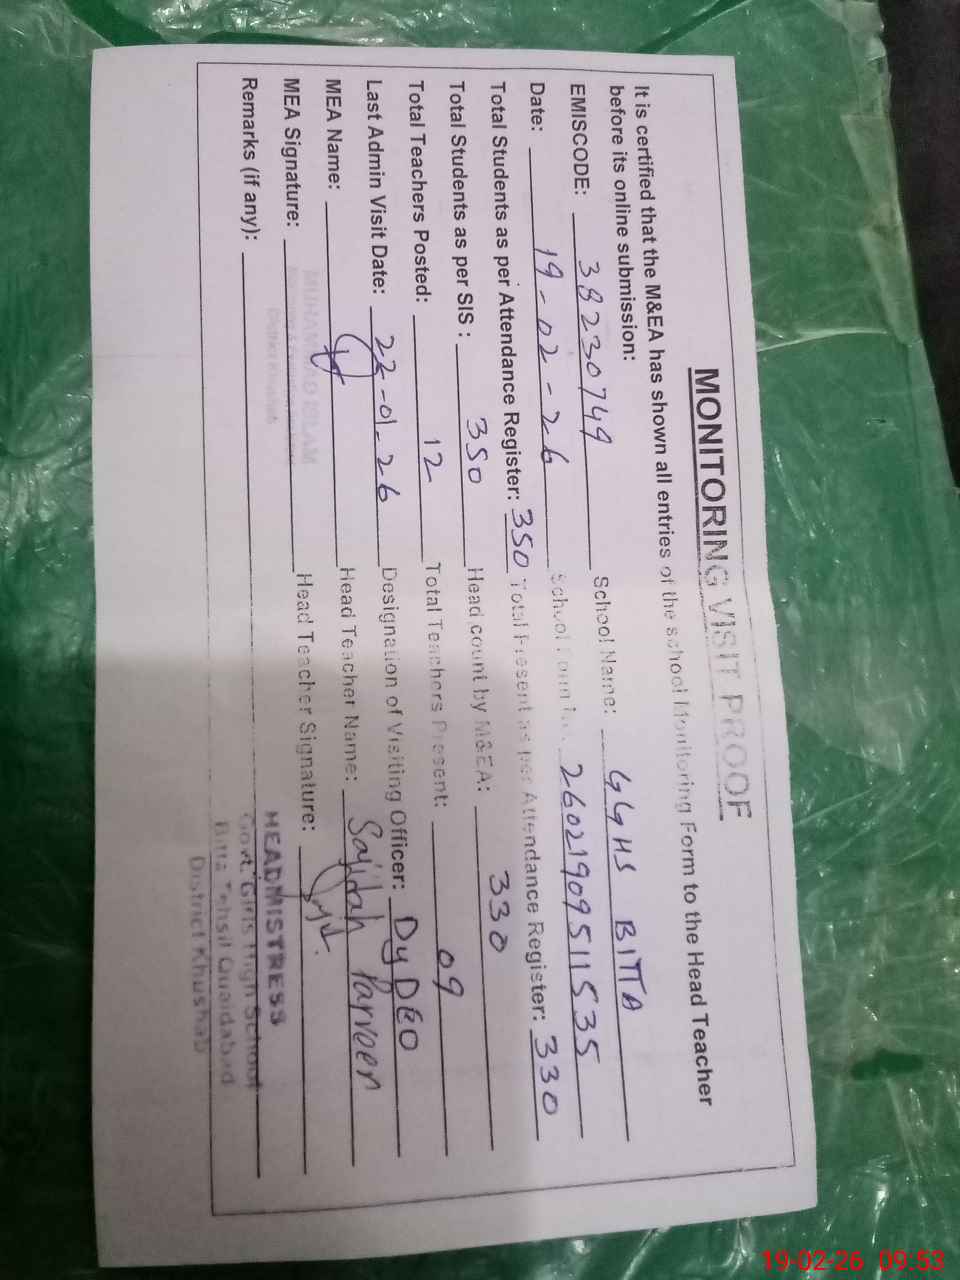 MONITORING VISIT PROOF
It is certified that the M&EA has shown all entries of the school Monitoring Form to the Head Teacher
before its online submission:
EMISCODE: 38230749 School Name: GGHS BITTA
Date: 19-02-26 School Form 26021909511535
Total Students as per Attendance Register: 350 Total Present as per Attendance Register: 330
Total Students as per SIS : 350 Head count by M&EA: 330
Total Teachers Posted: 12 Total Teachers Present: 09
Last Admin Visit Date: 22-01-26 Designation of Visiting Officer: Dy DEO
MEA Name: Head Teacher Name: Sajidah Parveen
MEA Signature: Head Teacher Signature:
MUHAMMAD ISLAM
District Khushab
Remarks (if any):
HEADMISTRESS
Govt. Girls High School
Bitta Tehsil Quaidabad
District Khushab
19-02-26 09:53